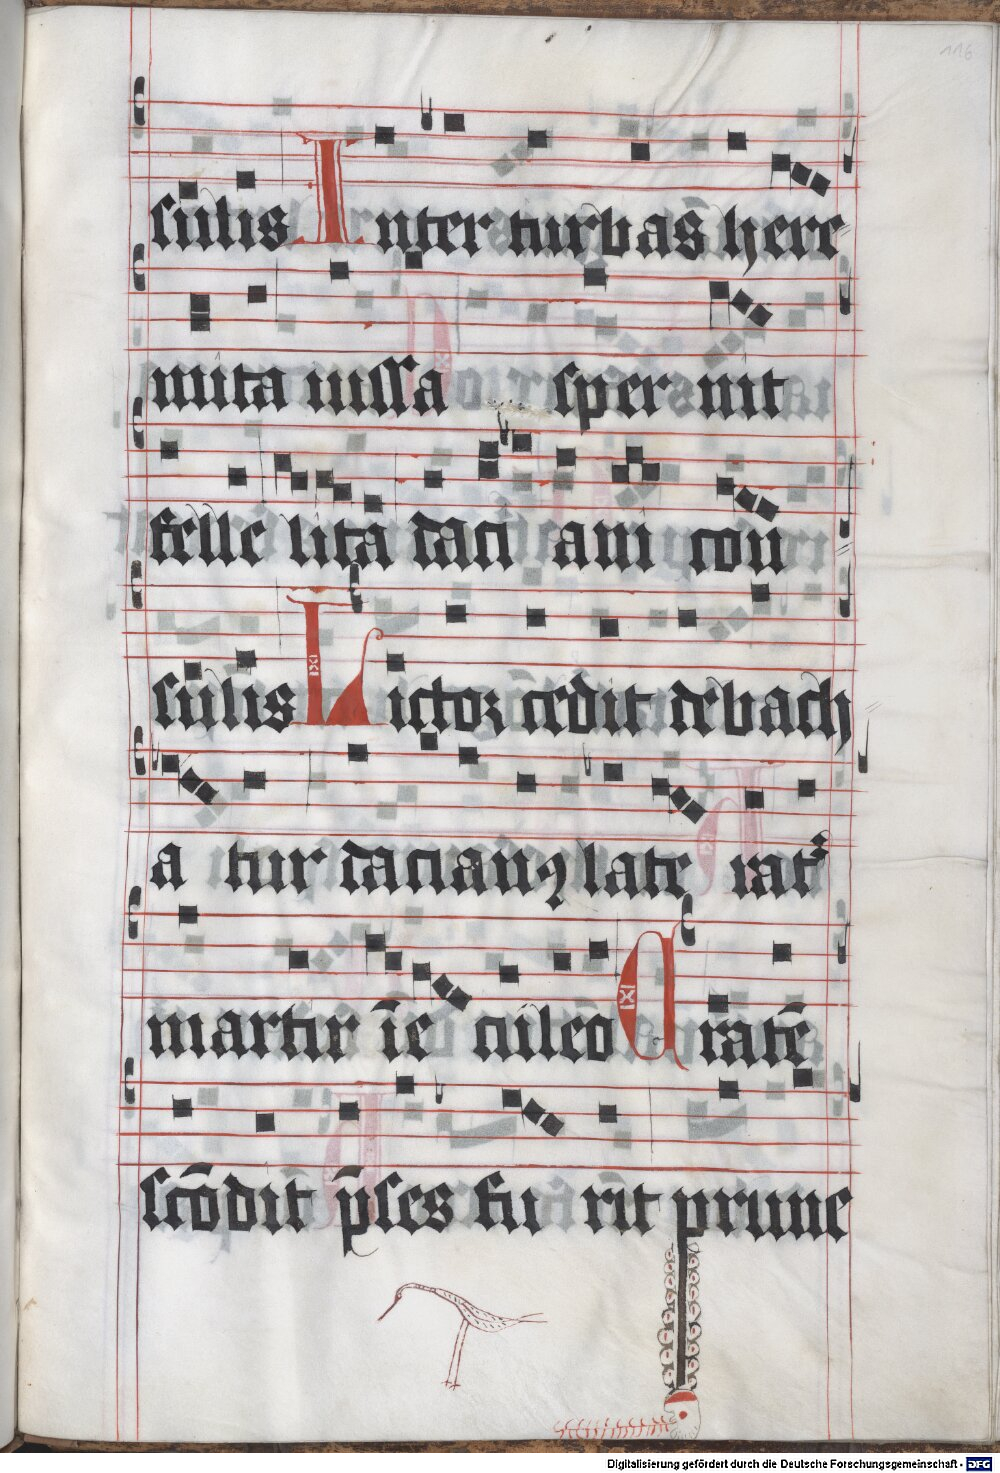 116
sulis Inter turbas here
mita iussa spernit
felle lita daci ani cōn
sulis Uictor cedit debach
a tur daciani ꝗ late rat
martir īe culeo Cratē
scōdit p̄ses fu rit prune
Digitalisierung gefördert durch die Deutsche Forschungsgemeinschaft - DFG